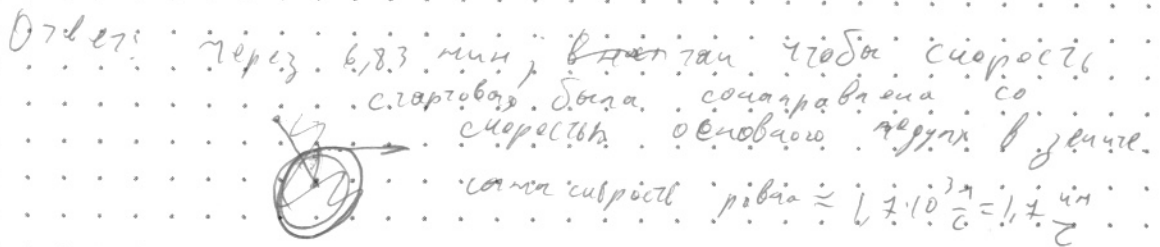 Ответ: через 6,83 мин, так чтобы скорость
стартовая была сонаправлена со
скоростью основного модуля в зените.
сама скорость равна ≈ 1,7·10³ м/с = 1,7 км/с